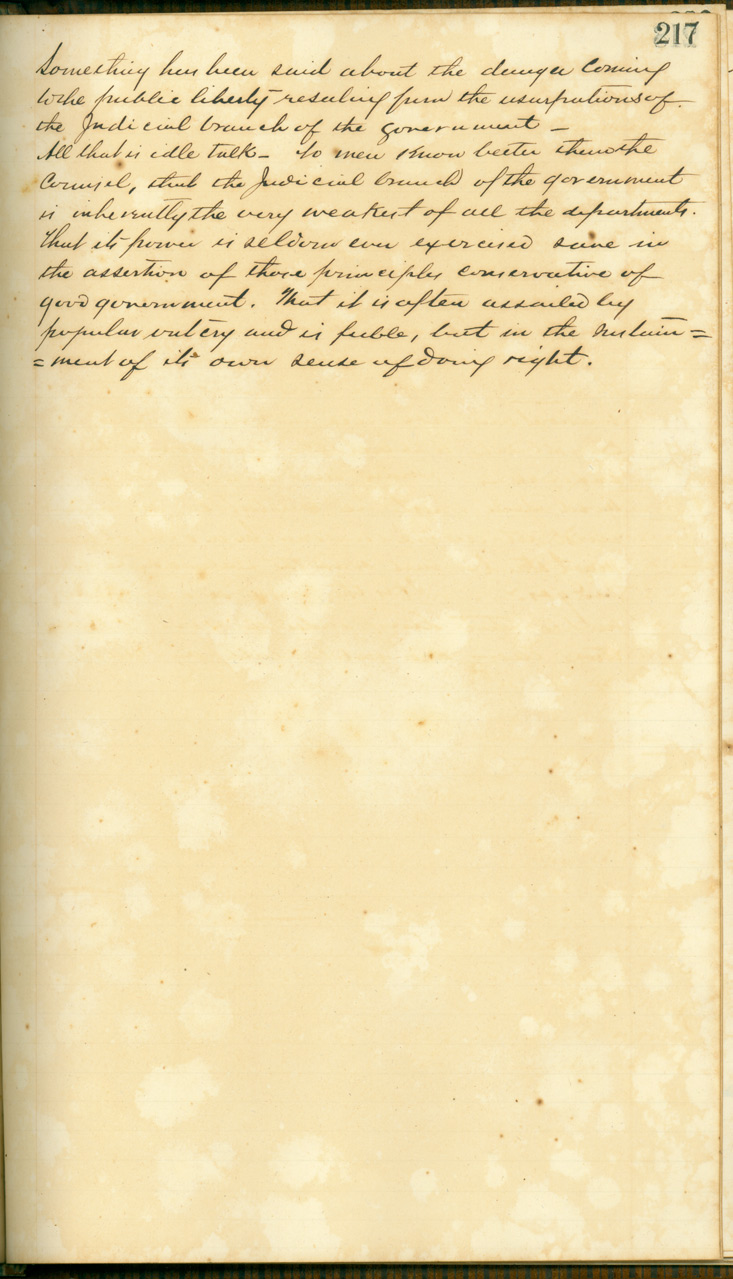 217
Something has been said about the danger coming
to the public liberty resulting from the usurpations of
the Judicial branch of the government —
All that is idle talk — No men know better than the
Counsel, that the Judicial branch of the government
is inherently the very weakest of all the departments.
That its power is seldom ever exercised save in
the assertion of those principles conservative of
good government. That it is often assailed by
popular outcry and is feeble, but in the sustain=
=ment of its own sense of doing right.